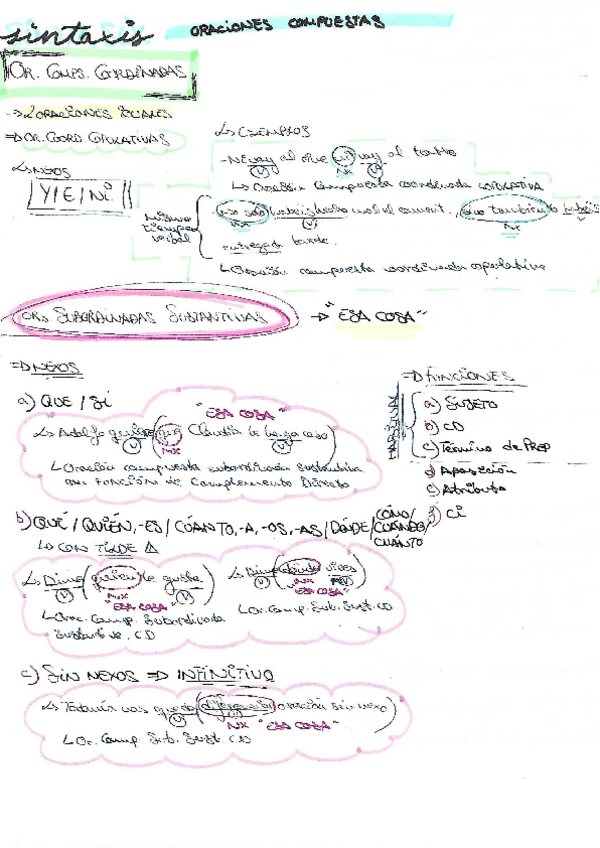 sintaxis ORACIONES COMPUESTAS
OR. COMPS. COORDINADAS
→ 2 ORACIONES IGUALES
⇒ OR. COORD. COPULATIVAS
↳ NEXOS
Y/E/Ni.
↳ EJEMPLOS
- Ni voy al cine ni voy al teatro
V NX V
↳ Oración compuesta coordinada COPULATIVA
Mismo tiempo verbal
no solo habéis hecho mal el , sino también lo habéis
NX V NX
entregado tarde.
↳ Oración compuesta coordinada copulativa
ORs. SUBORDINADAS SUSTANTIVAS → "ESA COSA"
⇒ NEXOS
a) QUE / Si
"ESA COSA"
↳ Adolfo quiere (que Claudia le haga caso)
V NX V
↳ Oración compuesta subordinada sustantiva
en FUNCIÓN de Complemento Directo
⇒ FUNCIONES
a) SUJETO
b) CD
c) Término de PREP
d) Aposición
e) Atributo
f) Ci
b) QUÉ / QUIÉN, -ES / CÚANTO, -A, -OS, -AS / DÓNDE / CÓMO / CUÁNDO / CUÁNTO
↳ CON TILDE
↳ Dime (quien te gusta)
V NX V
"ESA COSA"
↳ Orac. Comp. Subordinada
Sustantiva. CD
↳ Dime (donde vives)
V NX V
"ESA COSA"
↳ Or. Comp. Sub. Sust. CD
c) SiN NEXOS ⇒ INFINITIVO
↳ Todavía nos queda ( oración sin nexo)
V NX "ESA COSA"
↳ Or. Comp Sub. Sust. CD